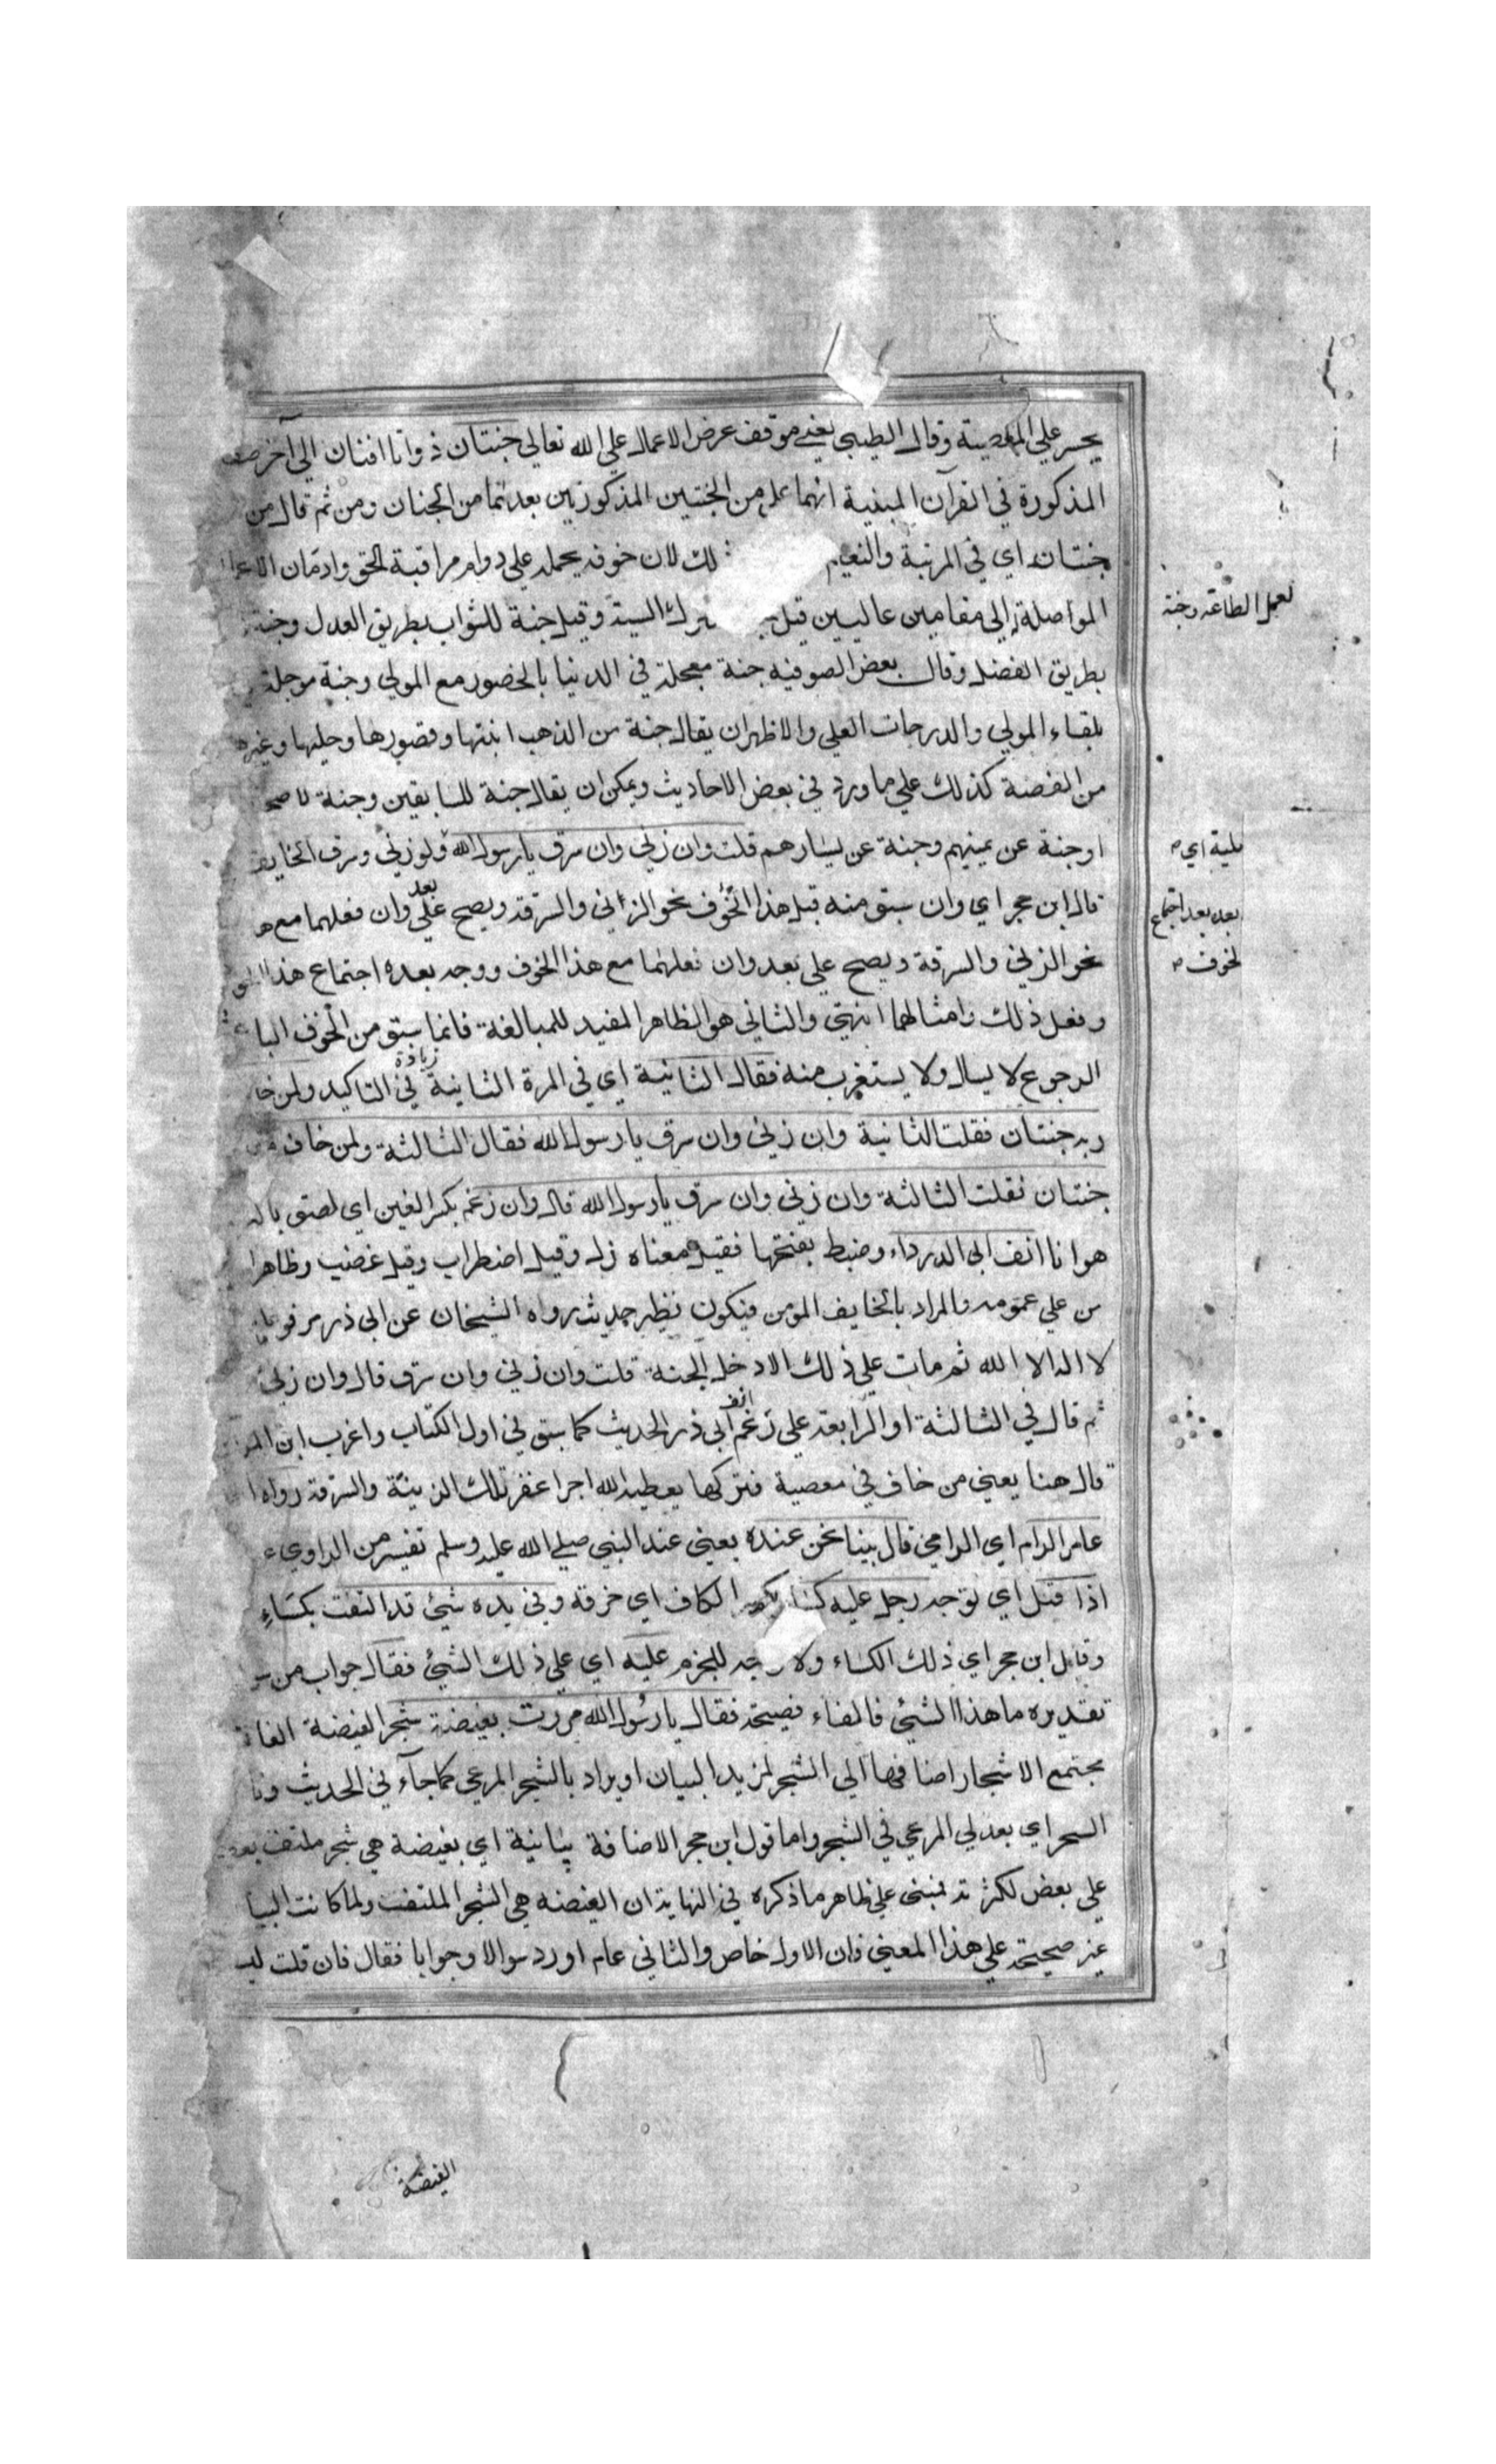 يجسر علي المعصية وقال الطيبي يعني موقف عرض الاعمال علي الله تعالي جنتان ذواتا افنان الي آخر صف
المذكورة في القرآن المبنية انهما علي من الجنتين المذكورتين بعدهما من الجنان ومن ثم قال من
جنتان اي في المرتبة والنعيم لك لان خوفه يحمله علي دوام مراقبة الحق وادمان الاعما
المواصلة الي مقامين عاليين قيل السيئة وقيل جنة للثواب بطريق العدل وجنة
لعمل الطاعة وجنة
بطريق الفضل وقال بعض الصوفيه جنة معجلة في الدنيا بالحضور مع المولي وجنة موجلة
بلقاء المولي والدرجات العلي والاظهر ان يقال جنة من الذهب ابنتها وقصورها وحليها وغيرها
من الفضة كذلك علي ما ورد في بعض الاحاديث ويمكن ان يقال جنة للسابقين وجنة لاصح
اوجنة عن يمينهم وجنة عن يسارهم قلت وان زني وان سرق يا رسول الله ولو زني وسرق الخايف
قال ابن حجر اي وان سبق منه قبل هذا الخوف نحو الزاني والسرقه ويصح علي بعد وان فعلهما مع ه
نحو الزني والسرقة ويصح علي بعد وان فعلهما مع هذا الخوف ووجه بعده اجتماع هذا
وفعل ذلك وامثالهما انتهي والثاني هو الظاهر المفيد للمبالغة فانما سبق من الخوف الباعث
الرجوع لا يسال ولا يستغرب منه فقال الثانية اي في المرة الثانية في زيادة التاكيد ولمن خا
ربه جنتان فقلت الثانية وان زني وان سرق يا رسول الله فقال الثالثة ولمن خاف
جنتان فقلت الثالثة وان زني وان سرق يا رسول الله قال وان رغم بكسر الغين اي لصق بال
هوانا انف ابي الدرداء وضبط بفتحها فقيل معناه ذل وقيل اضطراب وقيل غضب وظاهر
من علي عمومه والمراد بالخايف المومن فيكون نظير حديث رواه الشيخان عن ابي ذر مرفوعا
لا اله الا الله ثم مات علي ذلك الا دخل الجنة قلت وان زني وان سرق قال وان زني
ثم قال في الثالثة او الرابعة علي رغم انف ابي ذر الحديث كما سبق في اول الكتاب واغرب ابن
قال هنا يعني من خاف في معصية فتركها يعطيه الله اجرا غفر تلك الزنية والسرقة رواه
عامر الرام اي الرامي قال بينا نحن عنده يعني عند النبي صلي الله عليه وسلم تفسير من الراوي
اذا قبل اي توجه رجل عليه كسا بكسر الكاف اي خرقة وفي يده شئ قد التفت بكساء
وقابل ابن حجر اي ذلك الكساء ولا وجه للجزم عليه اي علي ذلك الشئ فقال جواب من
تقديره ما هذا الشئ فالفاء فصيحة فقال يا رسول الله مررت بغيضة شجر الغيضة الغا
مجتمع الاشجار اضافها الي الشجر لمزيد البيان او يراد بالشجر المرعي كما جاء في الحديث ونا
السحر اي بعد لي المرعي في الشجر واما قول ابن حجر الاضافة بيانية اي بغيضة هي شجر ملتف بعض
علي بعض لكثرته فمبني علي ظاهر ما ذكره في النهاية ان الغيضه هي الشجر الملتف ولما كانت البيا
غير صحيحة علي هذا المعني فان الاول خاص والثاني عام اورد سوالا وجوابا فقال فان قلت
الغيضة